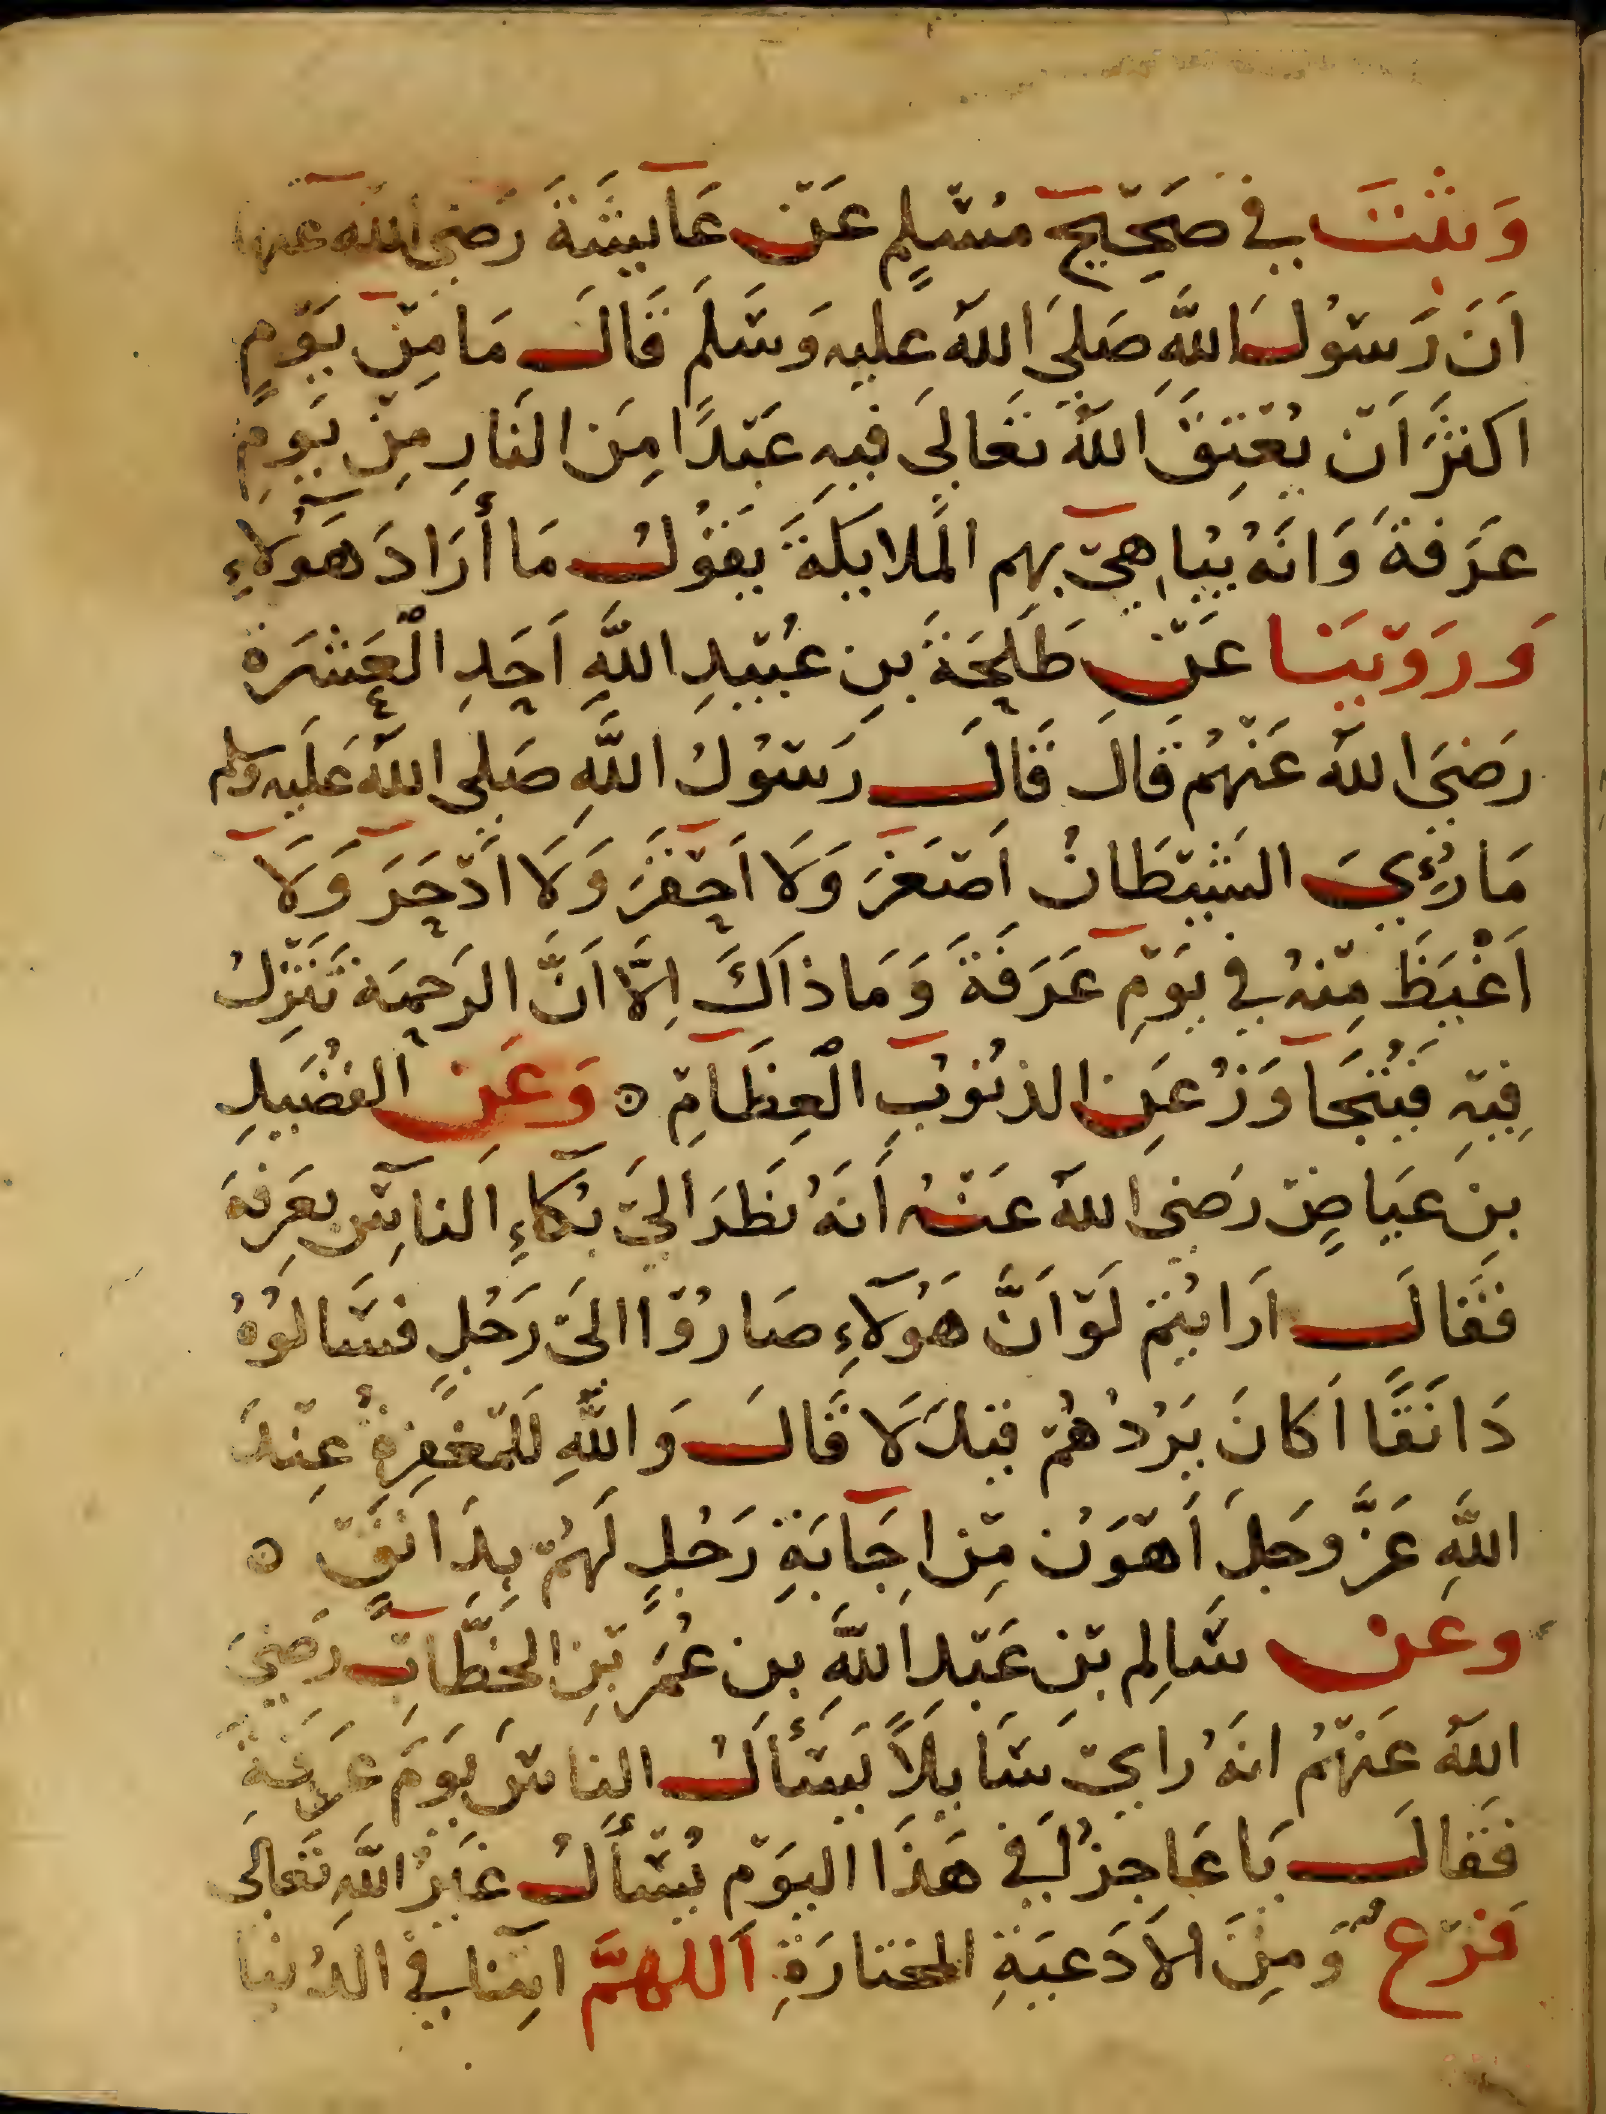 وَثَبَتَ فِي صَحِيحِ مُسْلِمٍ عَنْ عَايِشَةَ رَضِيَ اللَّهُ عنها
اَنَ رَسُولَ اللَّهِ صَلىَ اللهُ عليهِ وَسَلمَ قَالَ مَا مِنْ يَوْمٍ
اكثَرَ اَنْ يُعْتِقَ اللهُ تَعَالىَ فيهِ عَبْدًا مِنَ النَارِ مِنْ يَوْمِ
عَرَفةَ وَانَهُ يُبَاهِيْ بهم المَلايكَةَ يَقوُلُ مَا أَرَادَ هَؤلآءِ
وَرَوَيْنَا عَنْ طَلحَةَ بنِ عُبَيْدِ اللَّهِ اَحَدِ الْعَشرَة
رَضيَ اللهُ عَنْهُم قَالَ قَالَ رَسْوُلُ اللَّهِ صَلى اللهُ عَليهِ وسلم
مَا رُؤِيَ الشَيْطَانُ اَصْغَرَ وَلَا اَحْقَرَ وَلَا اَدْحَرَ وَلَا
اَغْيَظَ مِنْهُ في يَوْمِ عَرَفَةَ وَمَا ذاَكَ اِلَّا اَنَّ الرَحمَة تَنَزَّلُ
فِيْهِ فَيُتَجَاوَزُ عَنِ الذنُوُبِ الْعِظَامِ ۝ وَعَنِ الفُضَيلِ
بنِ عيَاضٍ رَضيَ اللهُ عَنْهُ أَنَهُ نَظَرَ اليَ بُكآءِ الناسِ بعَرفة
فَقَالَ اَرَايتُم لَوْ اَنَّ هَؤُلآءِ صَارُوْا الىَ رَجُلٍ فسَالوُهُ
دَانَقًا اَكانَ يَرُدُهُمْ قيلَ لَا قَالَ وَاللَّهِ لَلمَغفِرَةُ عِنْدَ
اللَّهِ عَزَّ وجَلَ أَهْوَنُ مِنْ اِجَابَةِ رَجُلٍ لَهُمْ بِدَانَقٍ ۝
وعَن سَالِم بْنِ عَبْدِ اللَّهِ بنِ عُمَرَ بْنِ الخَطَّابِ رَضيَ
اللهُ عَنْهُمُ انَهُ رايَ سَايِلاً يَسْأَلُ الناسَ يَوْمَ عَرَفةَ
فَقَالَ يَا عَاجزُ في هَذَا اليوَم يُسْأَلُ غَيرُ اللَّهِ تَعَالى
فَرْعٌ وَمِنَ الاَدعيَةِ المختَارَةِ اَللهُمَّ اتِنَا في الدُنيَا